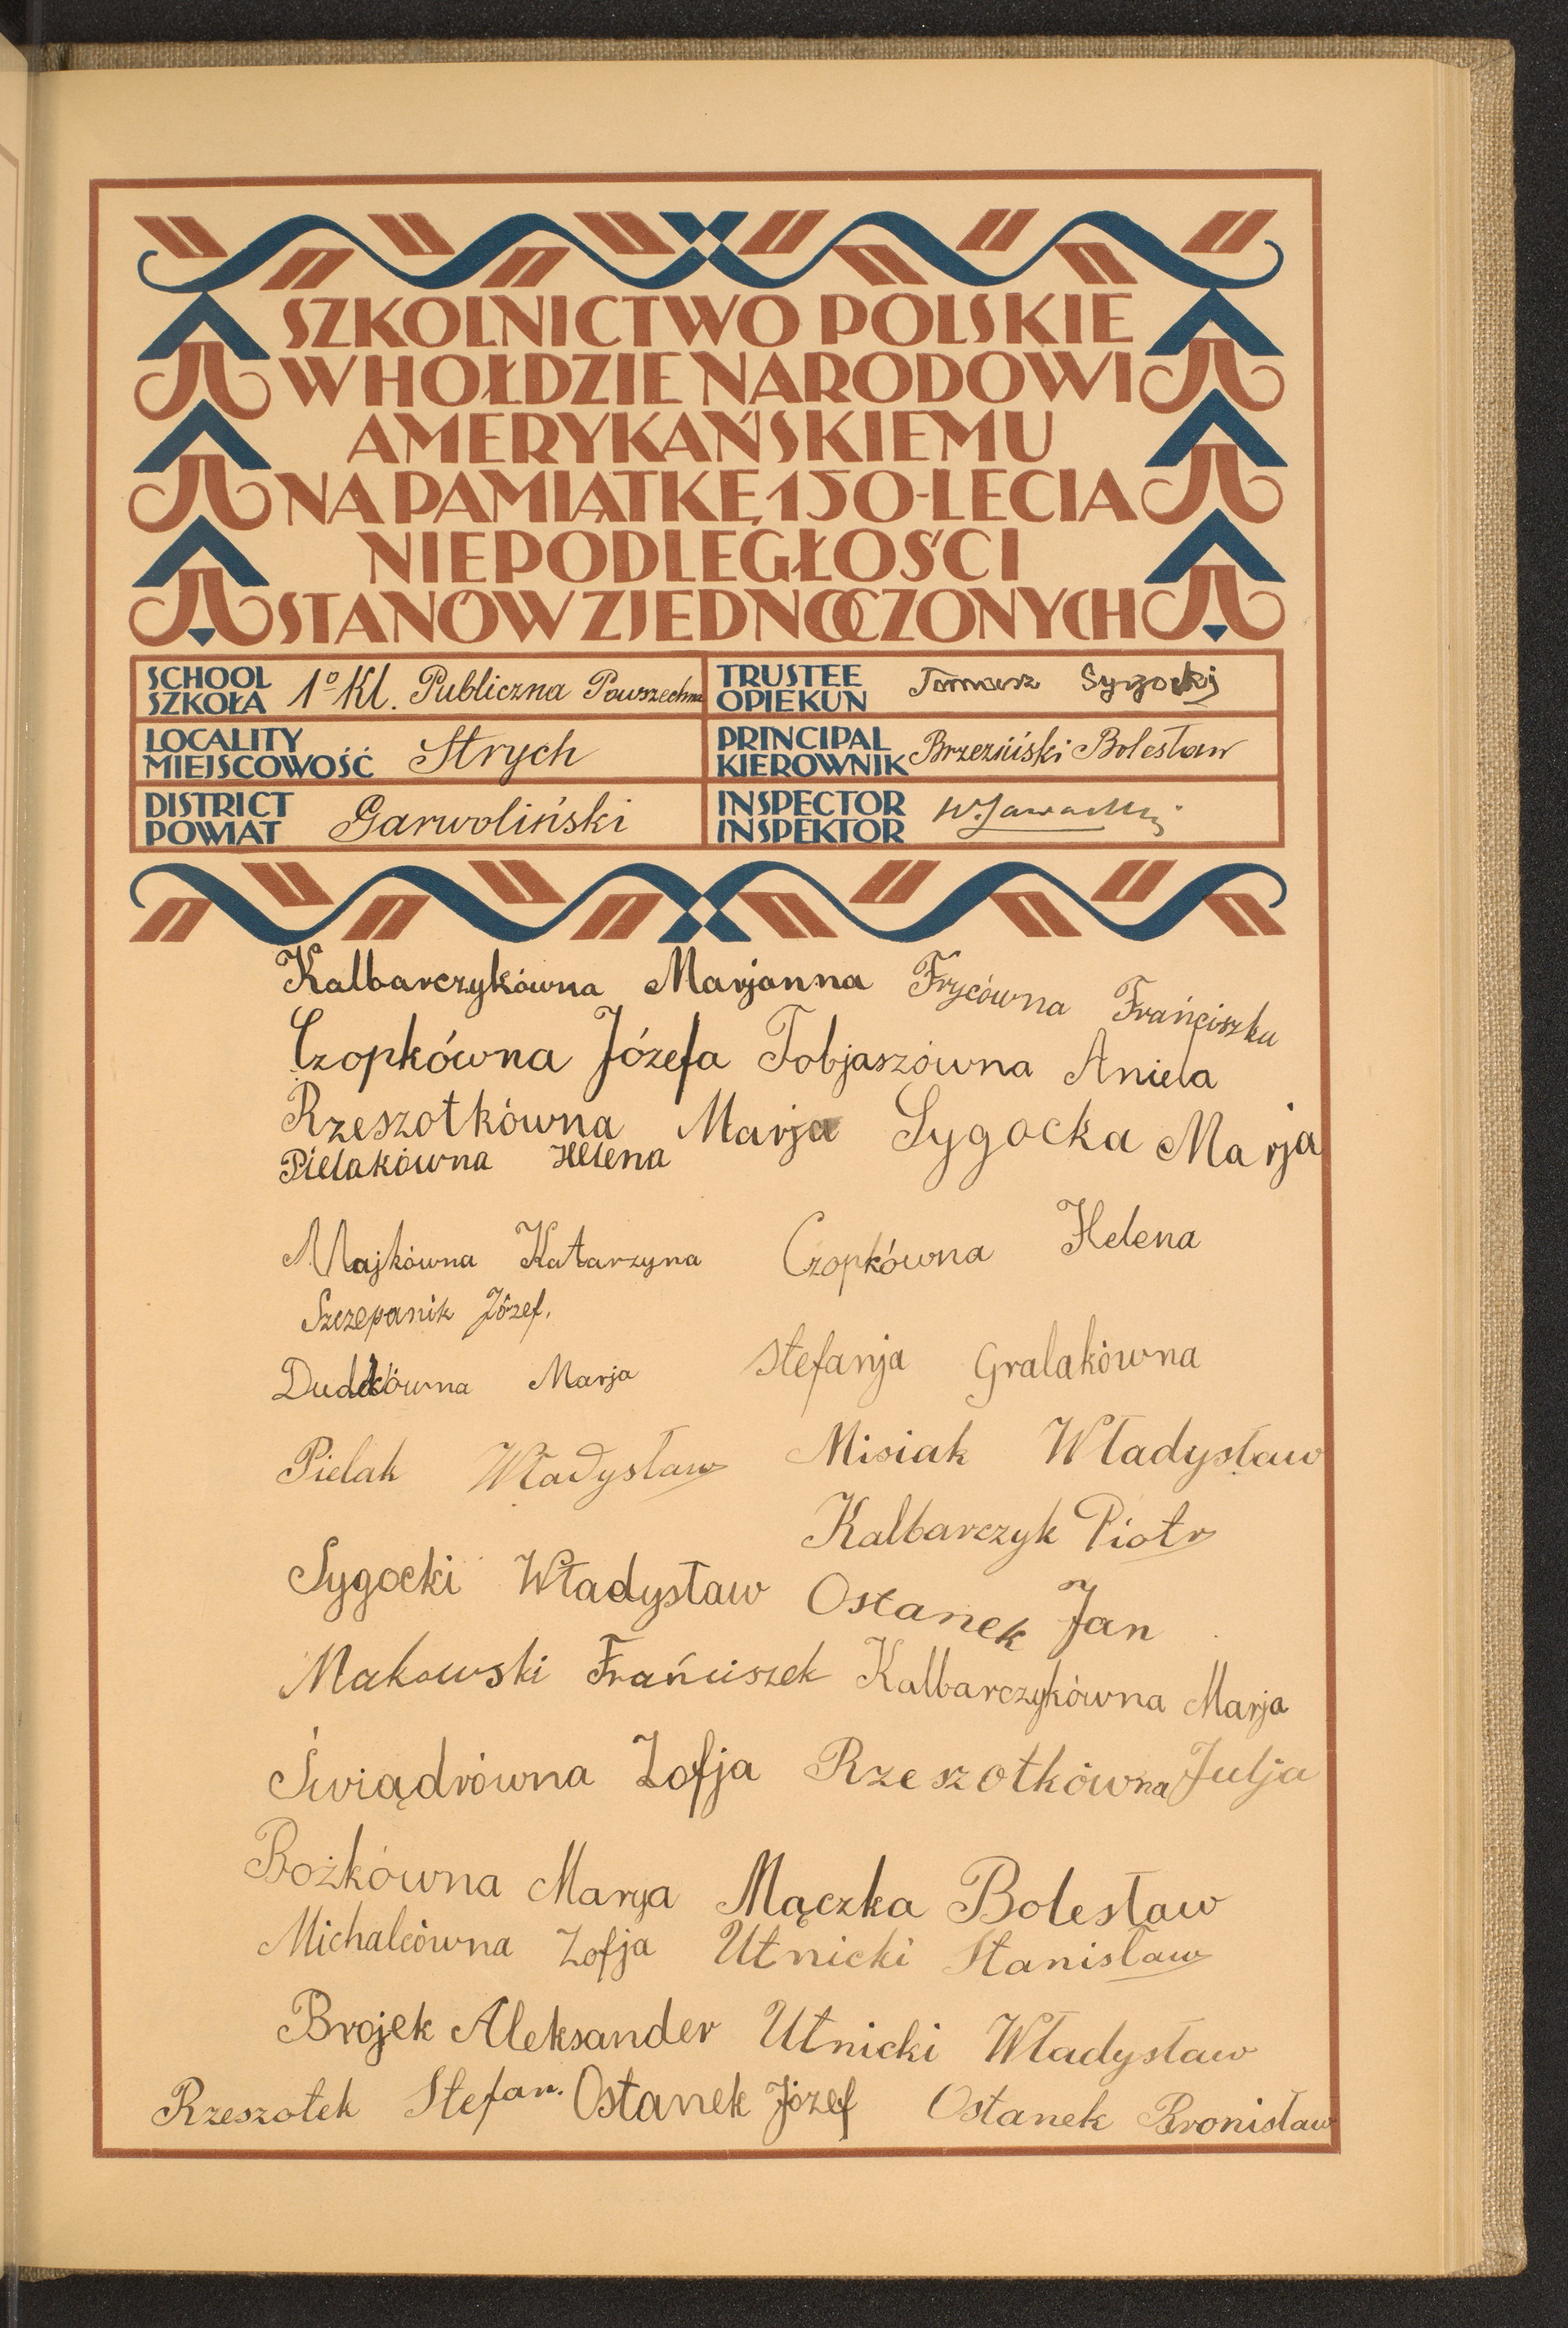 SZKOLNICTWO POLSKIE
W HOŁDZIE NARODOWI
AMERYKAŃSKIEMU
NA PAMIĄTKĘ 150-LECIA
NIEPODLEGŁOŚCI
STANÓW ZJEDNOCZONYCH
SCHOOL
SZKOŁA 1º Kl. Publiczna Powszechna
TRUSTEE
OPIEKUN Tomasz Sygocki
LOCALITY
MIEJSCOWOŚĆ Strych
PRINCIPAL
KIEROWNIK Brzeziński Bolesław
DISTRICT
POWIAT Garwoliński
INSPECTOR
INSPEKTOR
Kalbarczykówna Marjanna Frycówna Frańciszka
Czopkówna Józefa Tobjaszówna Aniela
Rzeszotkówna Marja Sygocka Marja
Pielakówna Helena
Majkówna Katarzyna Czopkówna Helena
Szczepanik Józef.
Dudkówna Marja Stefanja Gralakówna
Pielak Władysław Misiak Władysław
Kalbarczyk Piotr
Sygocki Władysław Ostanek Jan
Makowski Frańciszek Kalbarczykówna Marja
Świądrówna Zofja Rzeszotkówna Julja
Bożkówna Marya Mączka Bolesław
Michalcówna Zofja Utnicki Stanisław
Brojek Aleksander Utnicki Władysław
Rzeszotek Stefan. Ostanek Józef Ostanek Bronisław